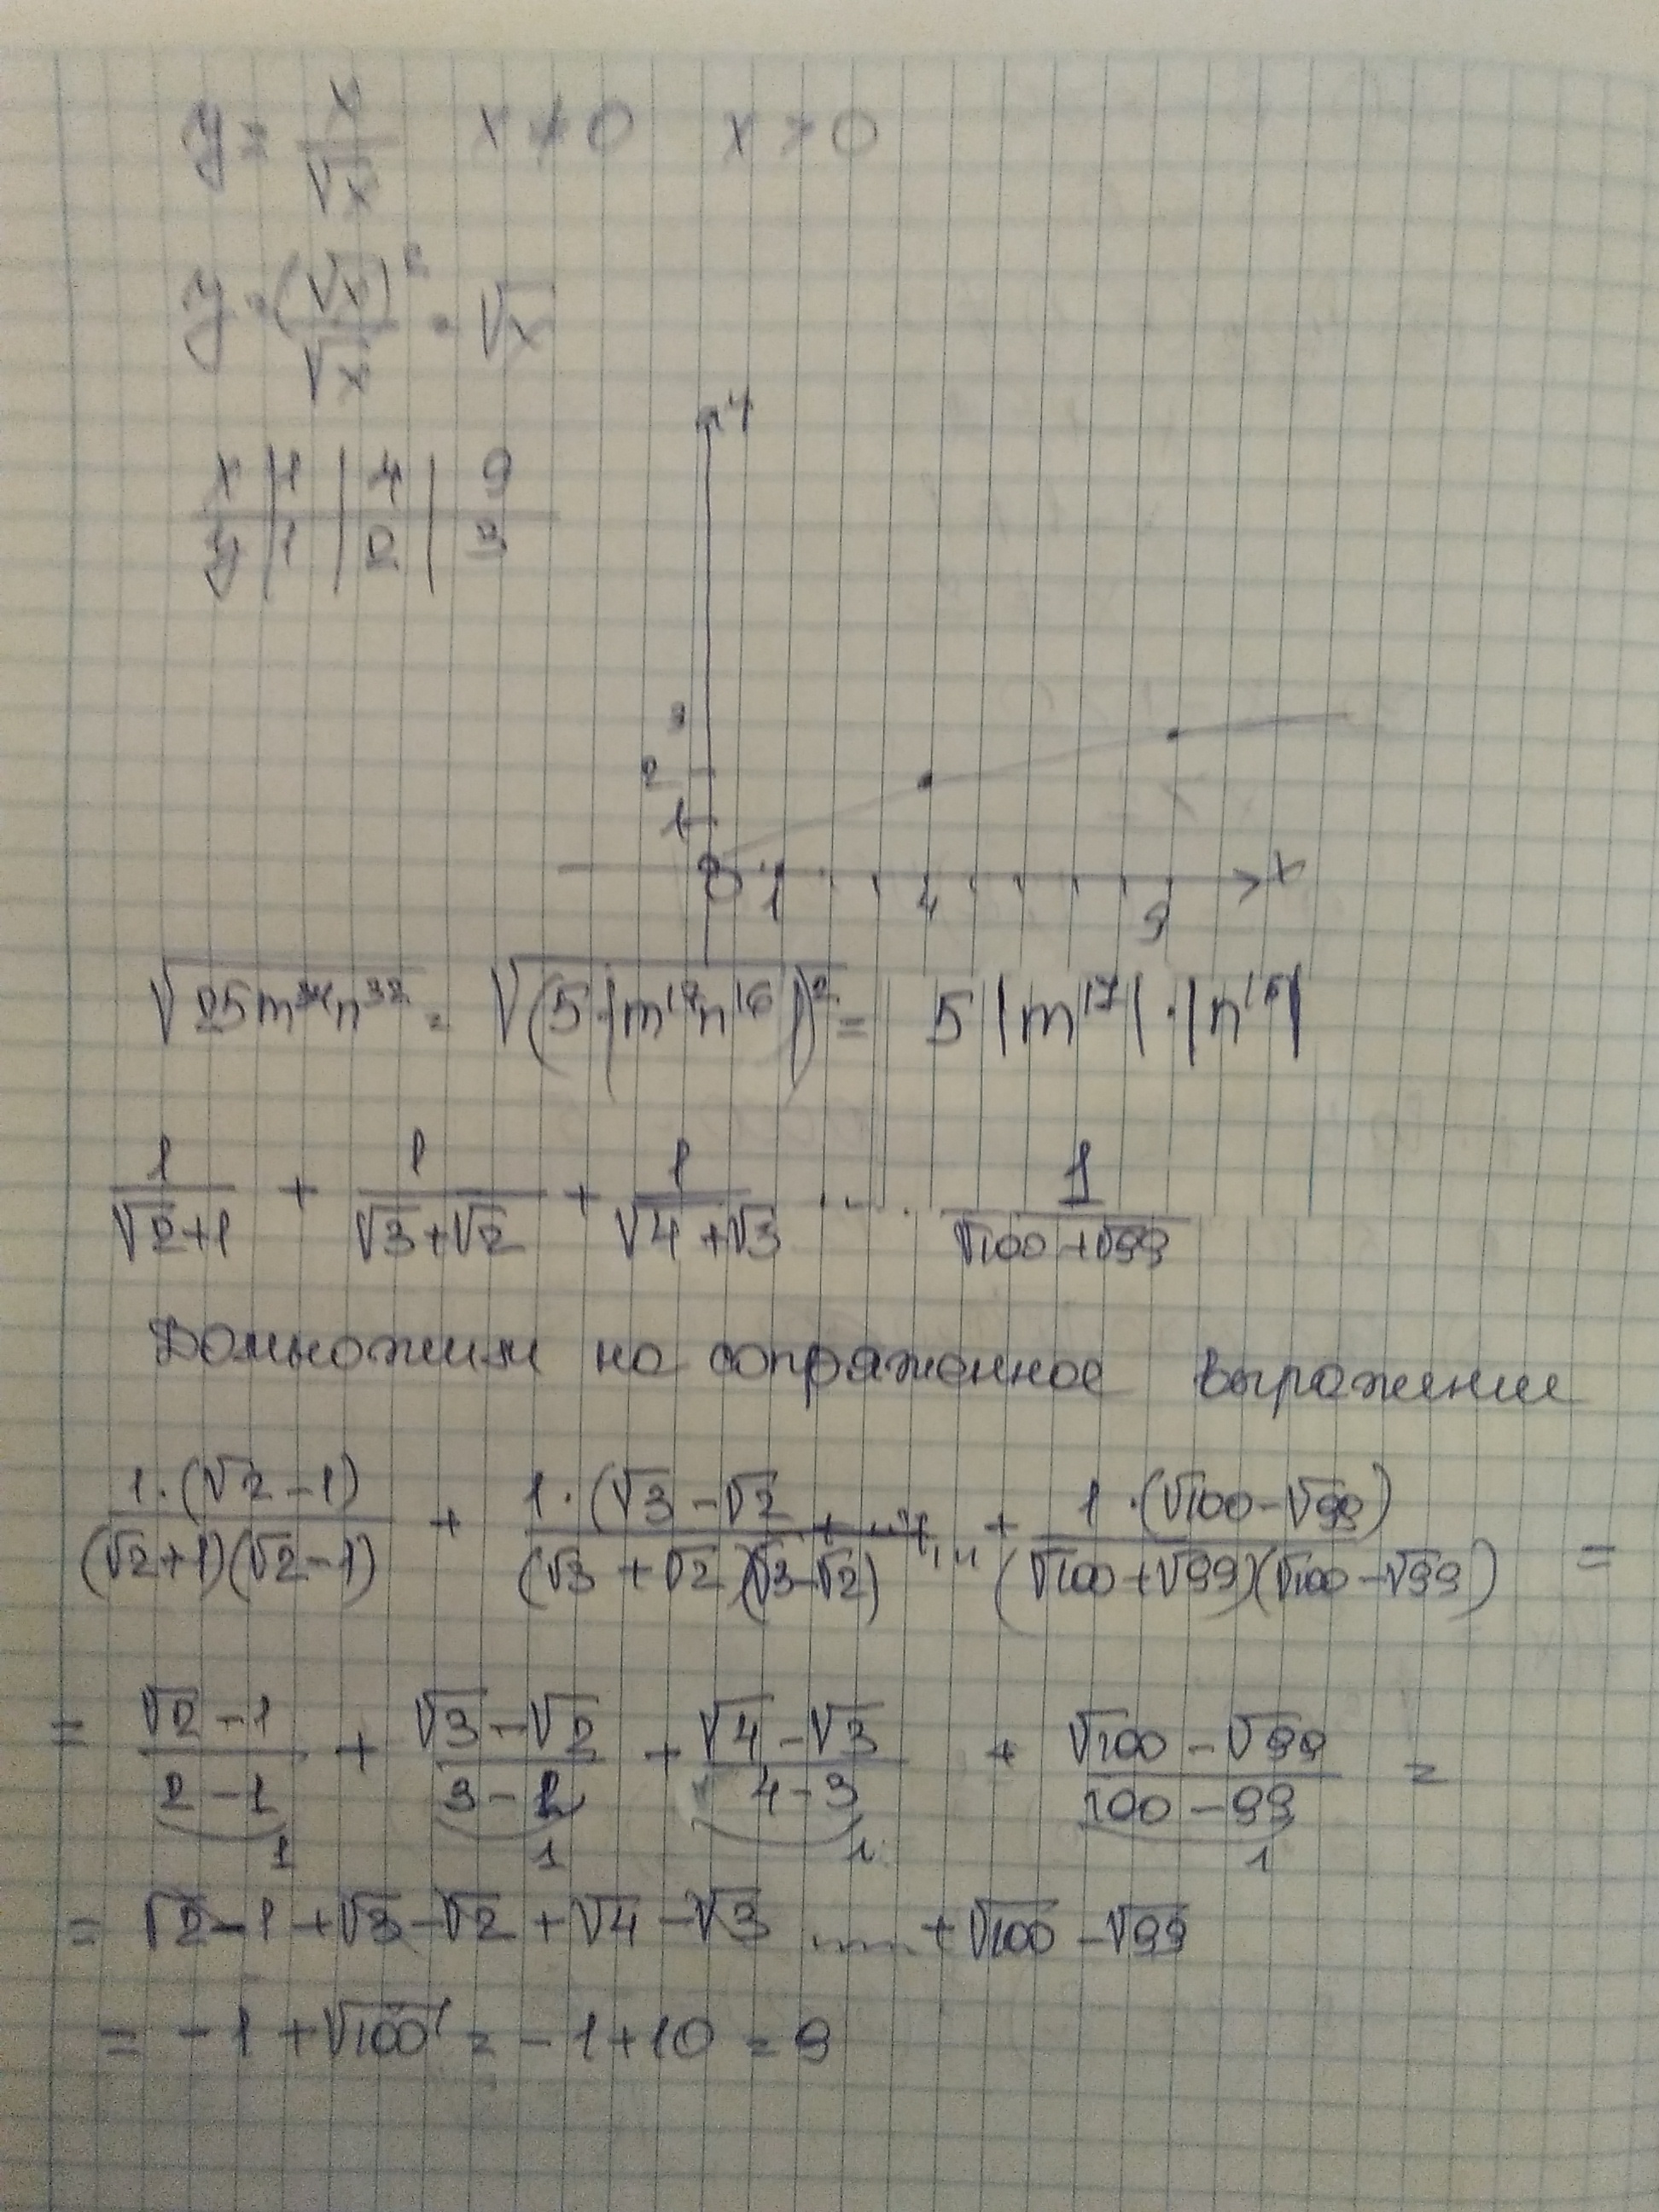 y = x/√x   x ≠ 0   x > 0
y = (√x)²/√x = √x
x | 1 | 4 | 9
y | 1 | 2 | 3
y
3
2
1
0 1 4 9 x
√(25m³⁴n³²) = √((5·|m¹⁷n¹⁶|)²) = 5|m¹⁷|·|n¹⁶|
1/(√2+1) + 1/(√3+√2) + 1/(√4+√3) .... 1/(√100+√99)
Домножим на сопряженное выражение
1·(√2-1)/((√2+1)(√2-1)) + 1·(√3-√2/((√3+√2)(√3-√2)) ... + 1·(√100-√99)/((√100+√99)(√100-√99)) =
= (√2-1)/(2-1) + (√3-√2)/(3-2) + (√4-√3)/(4-3) + (√100-√99)/(100-99) =
1 1 1 1
= √2-1+√3-√2+√4-√3 .....+√100-√99
= -1+√100 = -1+10 = 9